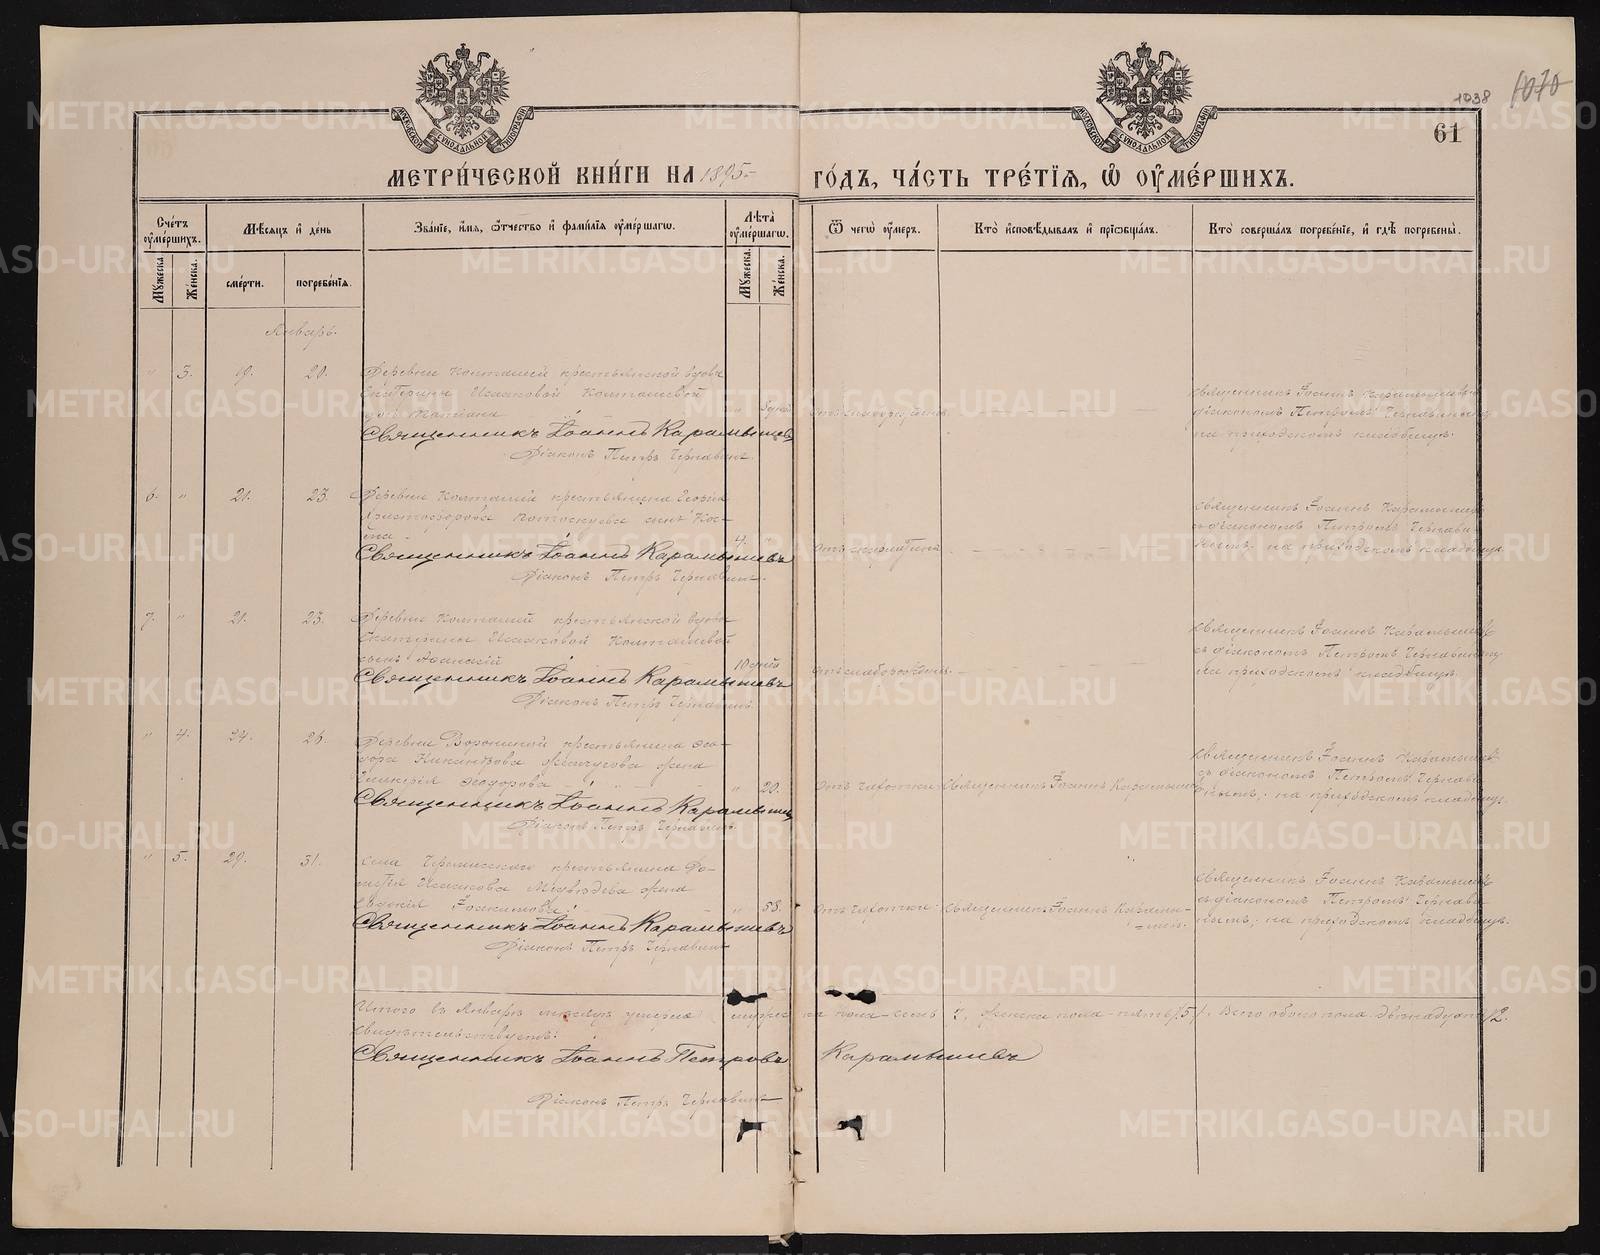 1038
1070
61
МОСКОВСКОЙ СѴНОДАЛЬНОЙ ТИПОГРАФІИ
МОСКОВСКОЙ СѴНОДАЛЬНОЙ ТИПОГРАФІИ
МЕТРИ́ЧЕСКОЙ КНИ́ГИ НА 1895 ГО́ДЪ, ЧА́СТЬ ТРЕ́ТІѦ, Ѡ҆ ОУ҆МЕ́РШИХЪ.
Сче́тъ оу҆ме́ршихъ.
Мꙋ́жеска. Же́нска.
Мѣ́сѧцъ и҆ де́нь
сме́рти. погребе́нїѧ.
Зва́нїе, и҆́мѧ, ѻ҆́тчество и҆ фами́лїѧ оу҆ме́ршагѡ.
Лѣ́та оу҆ме́ршагѡ.
Мꙋ́жеска. Же́нска.
Ѿ чегѡ̀ оу҆́меръ.
Кто̀ и҆сповѣ́дывалъ и҆ прїѡбща́лъ.
Кто̀ соверша́лъ погребе́нїе, и҆ гдѣ̀ погребены̀.
Январь.
" 3. 19. 20. Деревни Колташей крестьянской вдовы
Екатерины Исааковой Колташевой
дочь Татіана
Священникъ Іоаннъ Карамышевъ
Діаконъ Петръ Чернавинъ.
Священникъ Іоаннъ Карамышевъ
діакономъ Петромъ Чернавинымъ
на приходскомъ кладбищѣ.
6. " 21. 23. Деревни Колташей крестьянина Георгія
Христофорова сынъ
4.
Священникъ Іоаннъ Карамышевъ
Діаконъ Петръ Чернавинъ.
отъ скарлатины
Священникъ Іоаннъ Карамышевъ
съ діакономъ Петромъ Чернави-
нымъ, на приходскомъ кладбищѣ.
7. " 21. 23. Деревни Колташей крестьянской вдовы
Екатерины Исааковой Колташевой
сынъ Аѳанасій 10 дней
Священникъ Іоаннъ Карамышевъ
Діаконъ Петръ Чернавинъ.
отъ слаборожденія.
Священникъ Іоаннъ Карамышевъ
съ діакономъ Петромъ Чернавинымъ
на приходскомъ кладбищѣ.
" 4. 24. 26. Деревни Ворониной крестьянина Ѳео-
дора Никандрова жена
Гликерія Ѳеодорова " 20.
Священникъ Іоаннъ Карамышевъ
Діаконъ Петръ Чернавинъ.
Отъ чахотки Священникъ Іоаннъ Карамышевъ
Священникъ Іоаннъ Карамышевъ
съ діакономъ Петромъ Чернави-
нымъ, на приходскомъ кладбищѣ.
" 5. 29. 31. Села Черемисскаго крестьянина
Исаакова Медвѣдева жена
Евдокія Іоакимова " 58.
Священникъ Іоаннъ Карамышевъ
Діаконъ Петръ Чернавинъ
Отъ чахотки Священникъ Іоаннъ Карамы-
шевъ.
Священникъ Іоаннъ Карамышевъ
съ діакономъ Петромъ Чернави-
нымъ, на приходскомъ кладбищѣ.
Итого въ Январѣ мѣсяцѣ умерло мужеска пола – семь 7, женска пола – пять /5/. Всего обоего пола двѣнадцать 12.
Свидѣтельствуетъ:
Священникъ Іоаннъ Петровъ Карамышевъ
Діаконъ Петръ Чернавинъ
METRIKI.GASO-URAL.RU